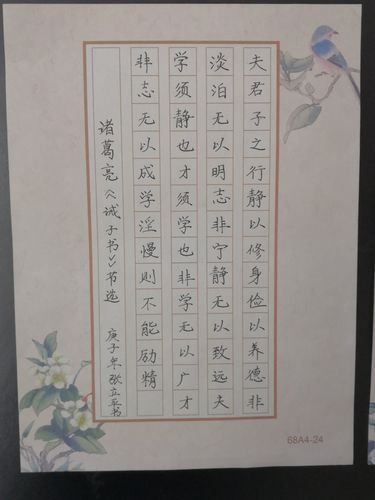 夫君子之行静以修身俭以养德非
淡泊无以明志非宁静无以致远夫
学须静也才须学也非学无以广才
非志无以成学淫慢则不能励精
诸葛亮《诫子书》节选
庚子年张立平书
68A4-24